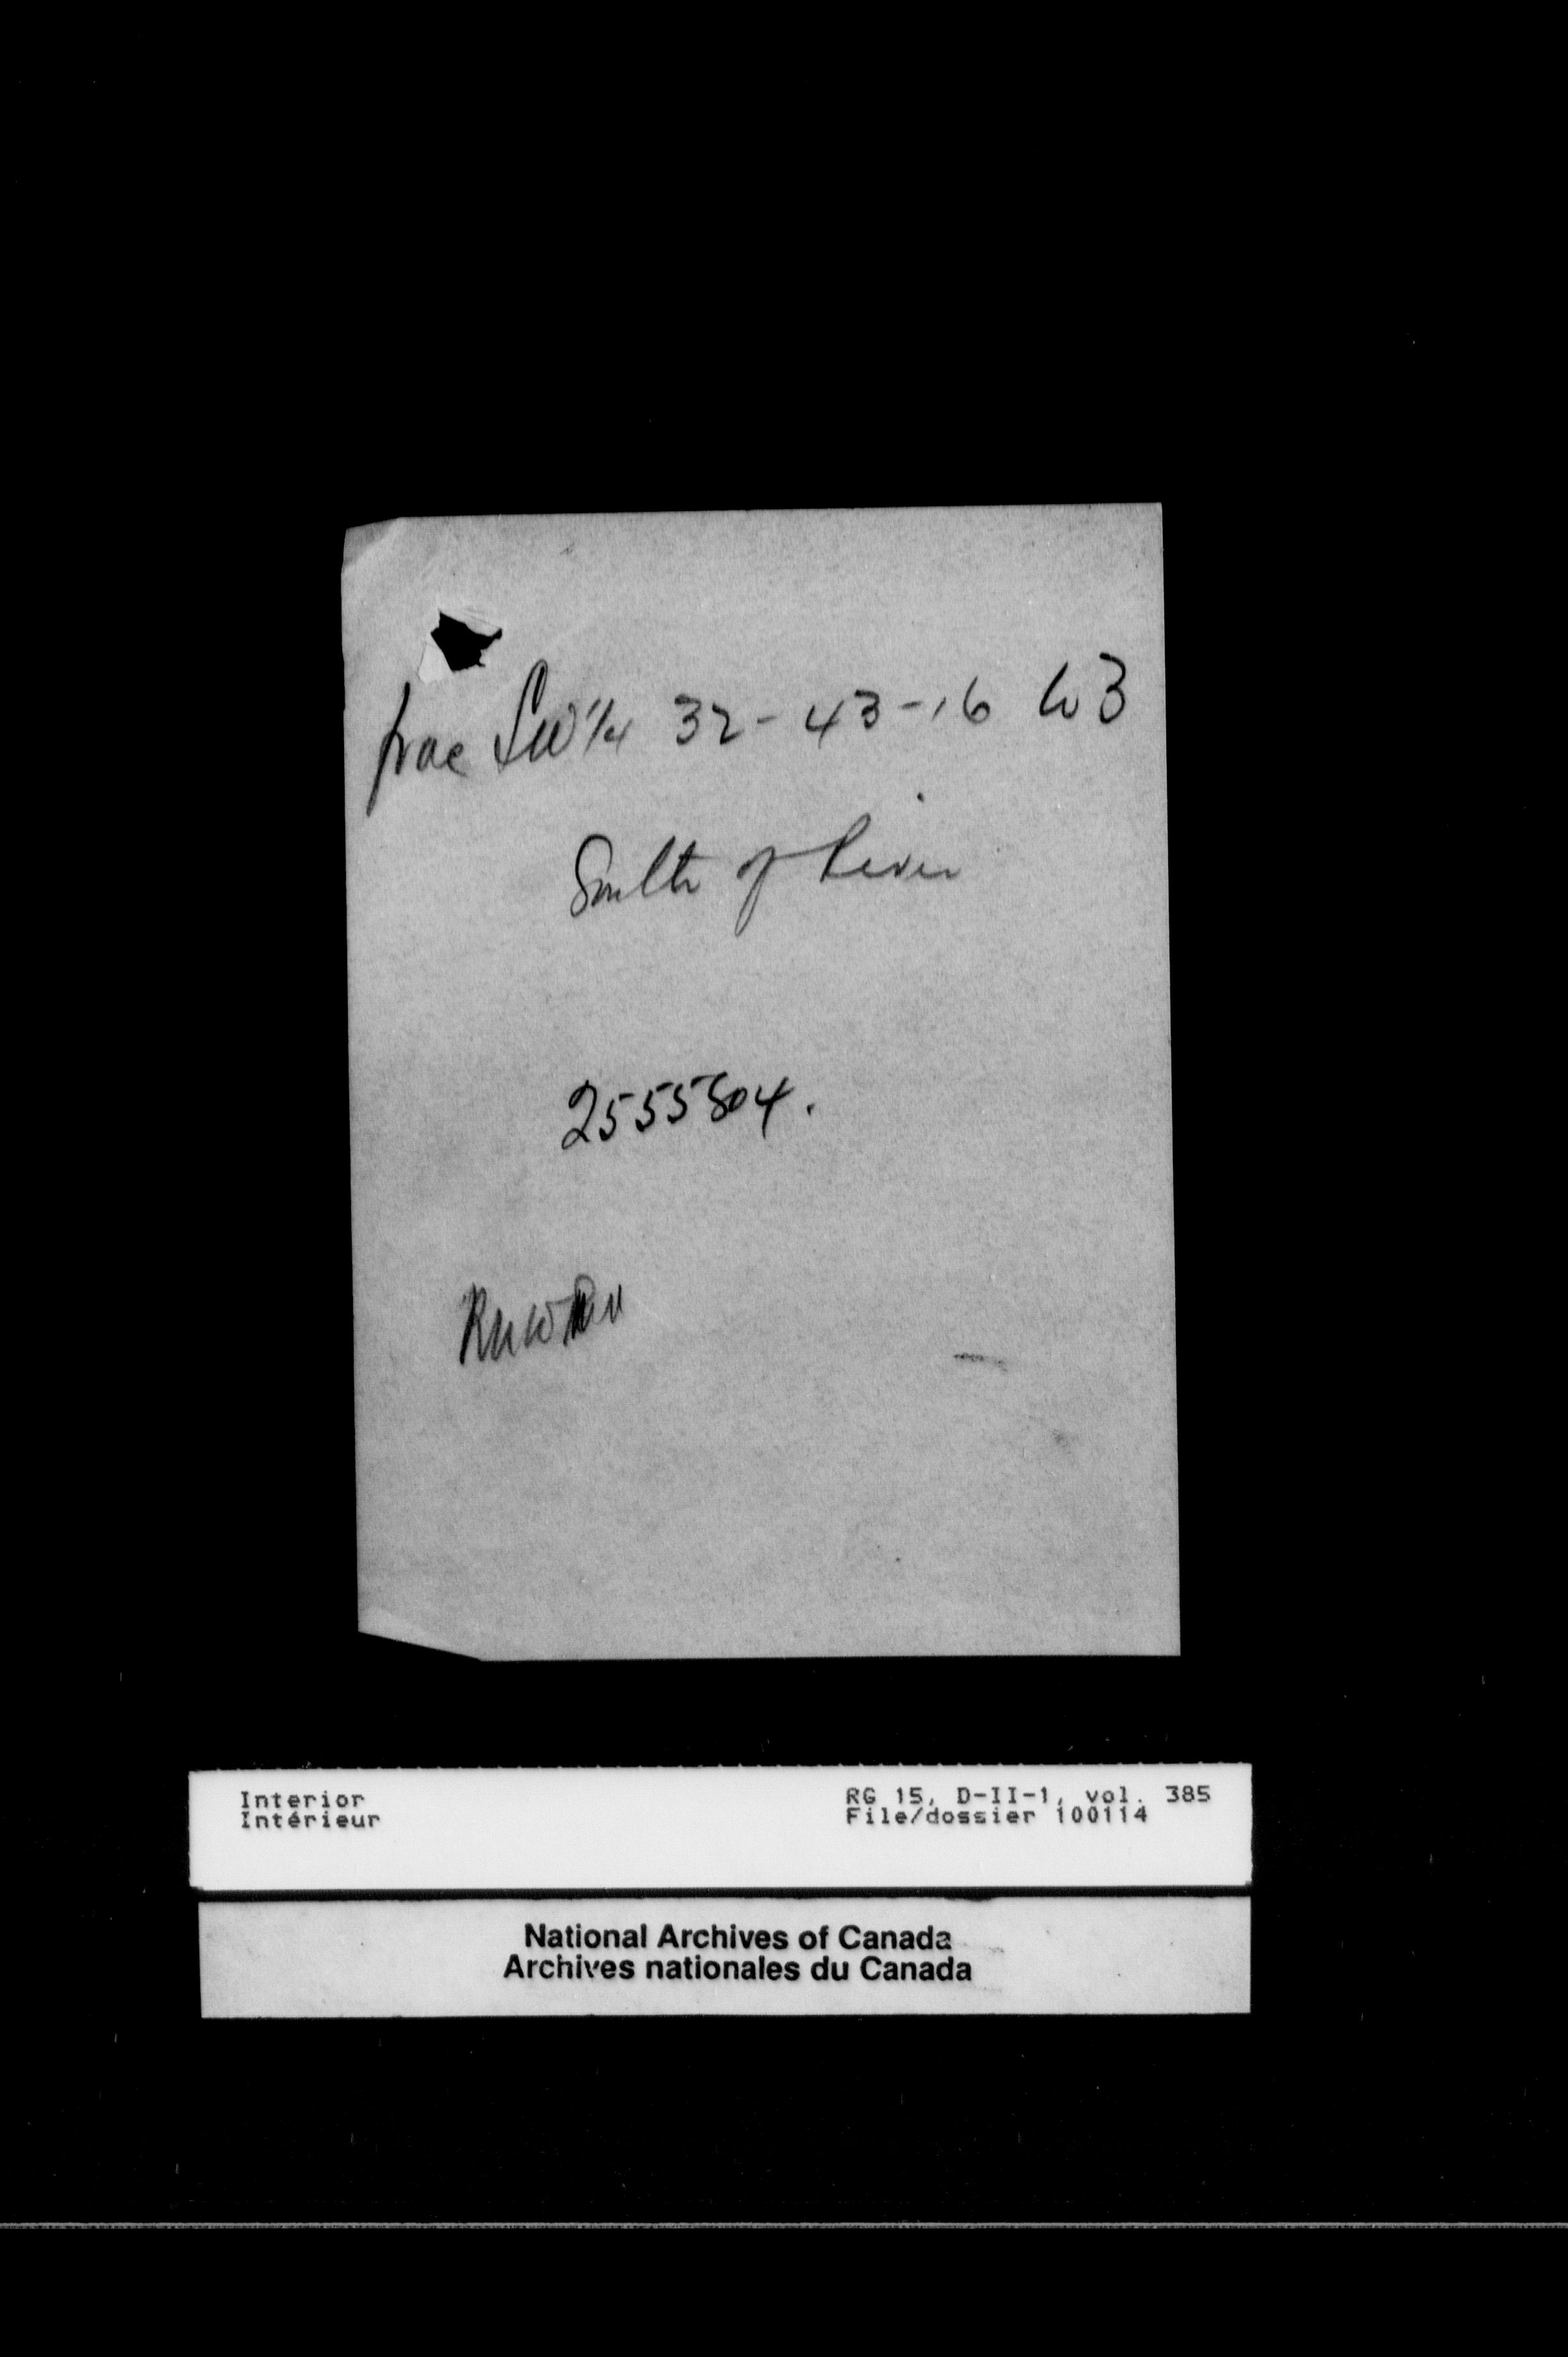 frac SW 1/4 32 - 43 - 16 W 3
South of River
2555804.
Interior
Intérieur
RG 15, D-II-1, vol. 385
File/dossier 100114
National Archives of Canada
Archives nationales du Canada